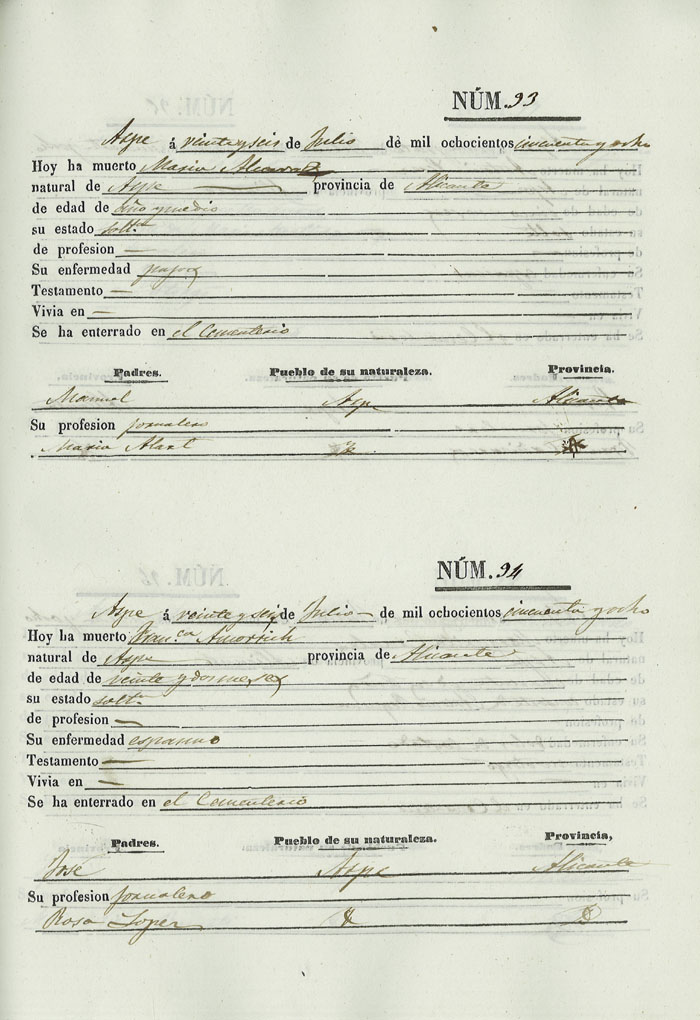 NÚM. 93
Aspe á veinte y seis de Julio de mil ochocientos cincuenta y ocho
Hoy ha muerto Maria Alcaraz
natural de Aspe provincia de Alicante
de edad de año y medio
su estado soltª
de profesion —
Su enfermedad
Testamento —
Vivia en —
Se ha enterrado en el Cementerio
Padres. Pueblo de su naturaleza. Provincia.
Manuel Aspe Alicante
Su profesion jornalero
Maria
NÚM. 94
Aspe á veinte y seis de Julio de mil ochocientos cincuenta y ocho
Hoy ha muerto Fran.ca Amorrich
natural de Aspe provincia de Alicante
de edad de veinte y dos meses
su estado soltª
de profesion —
Su enfermedad espasmo
Testamento —
Vivia en —
Se ha enterrado en el Cementerio
Padres. Pueblo de su naturaleza. Provincia,
José Aspe Alicante
Su profesion jornalero
Rosa Lopez